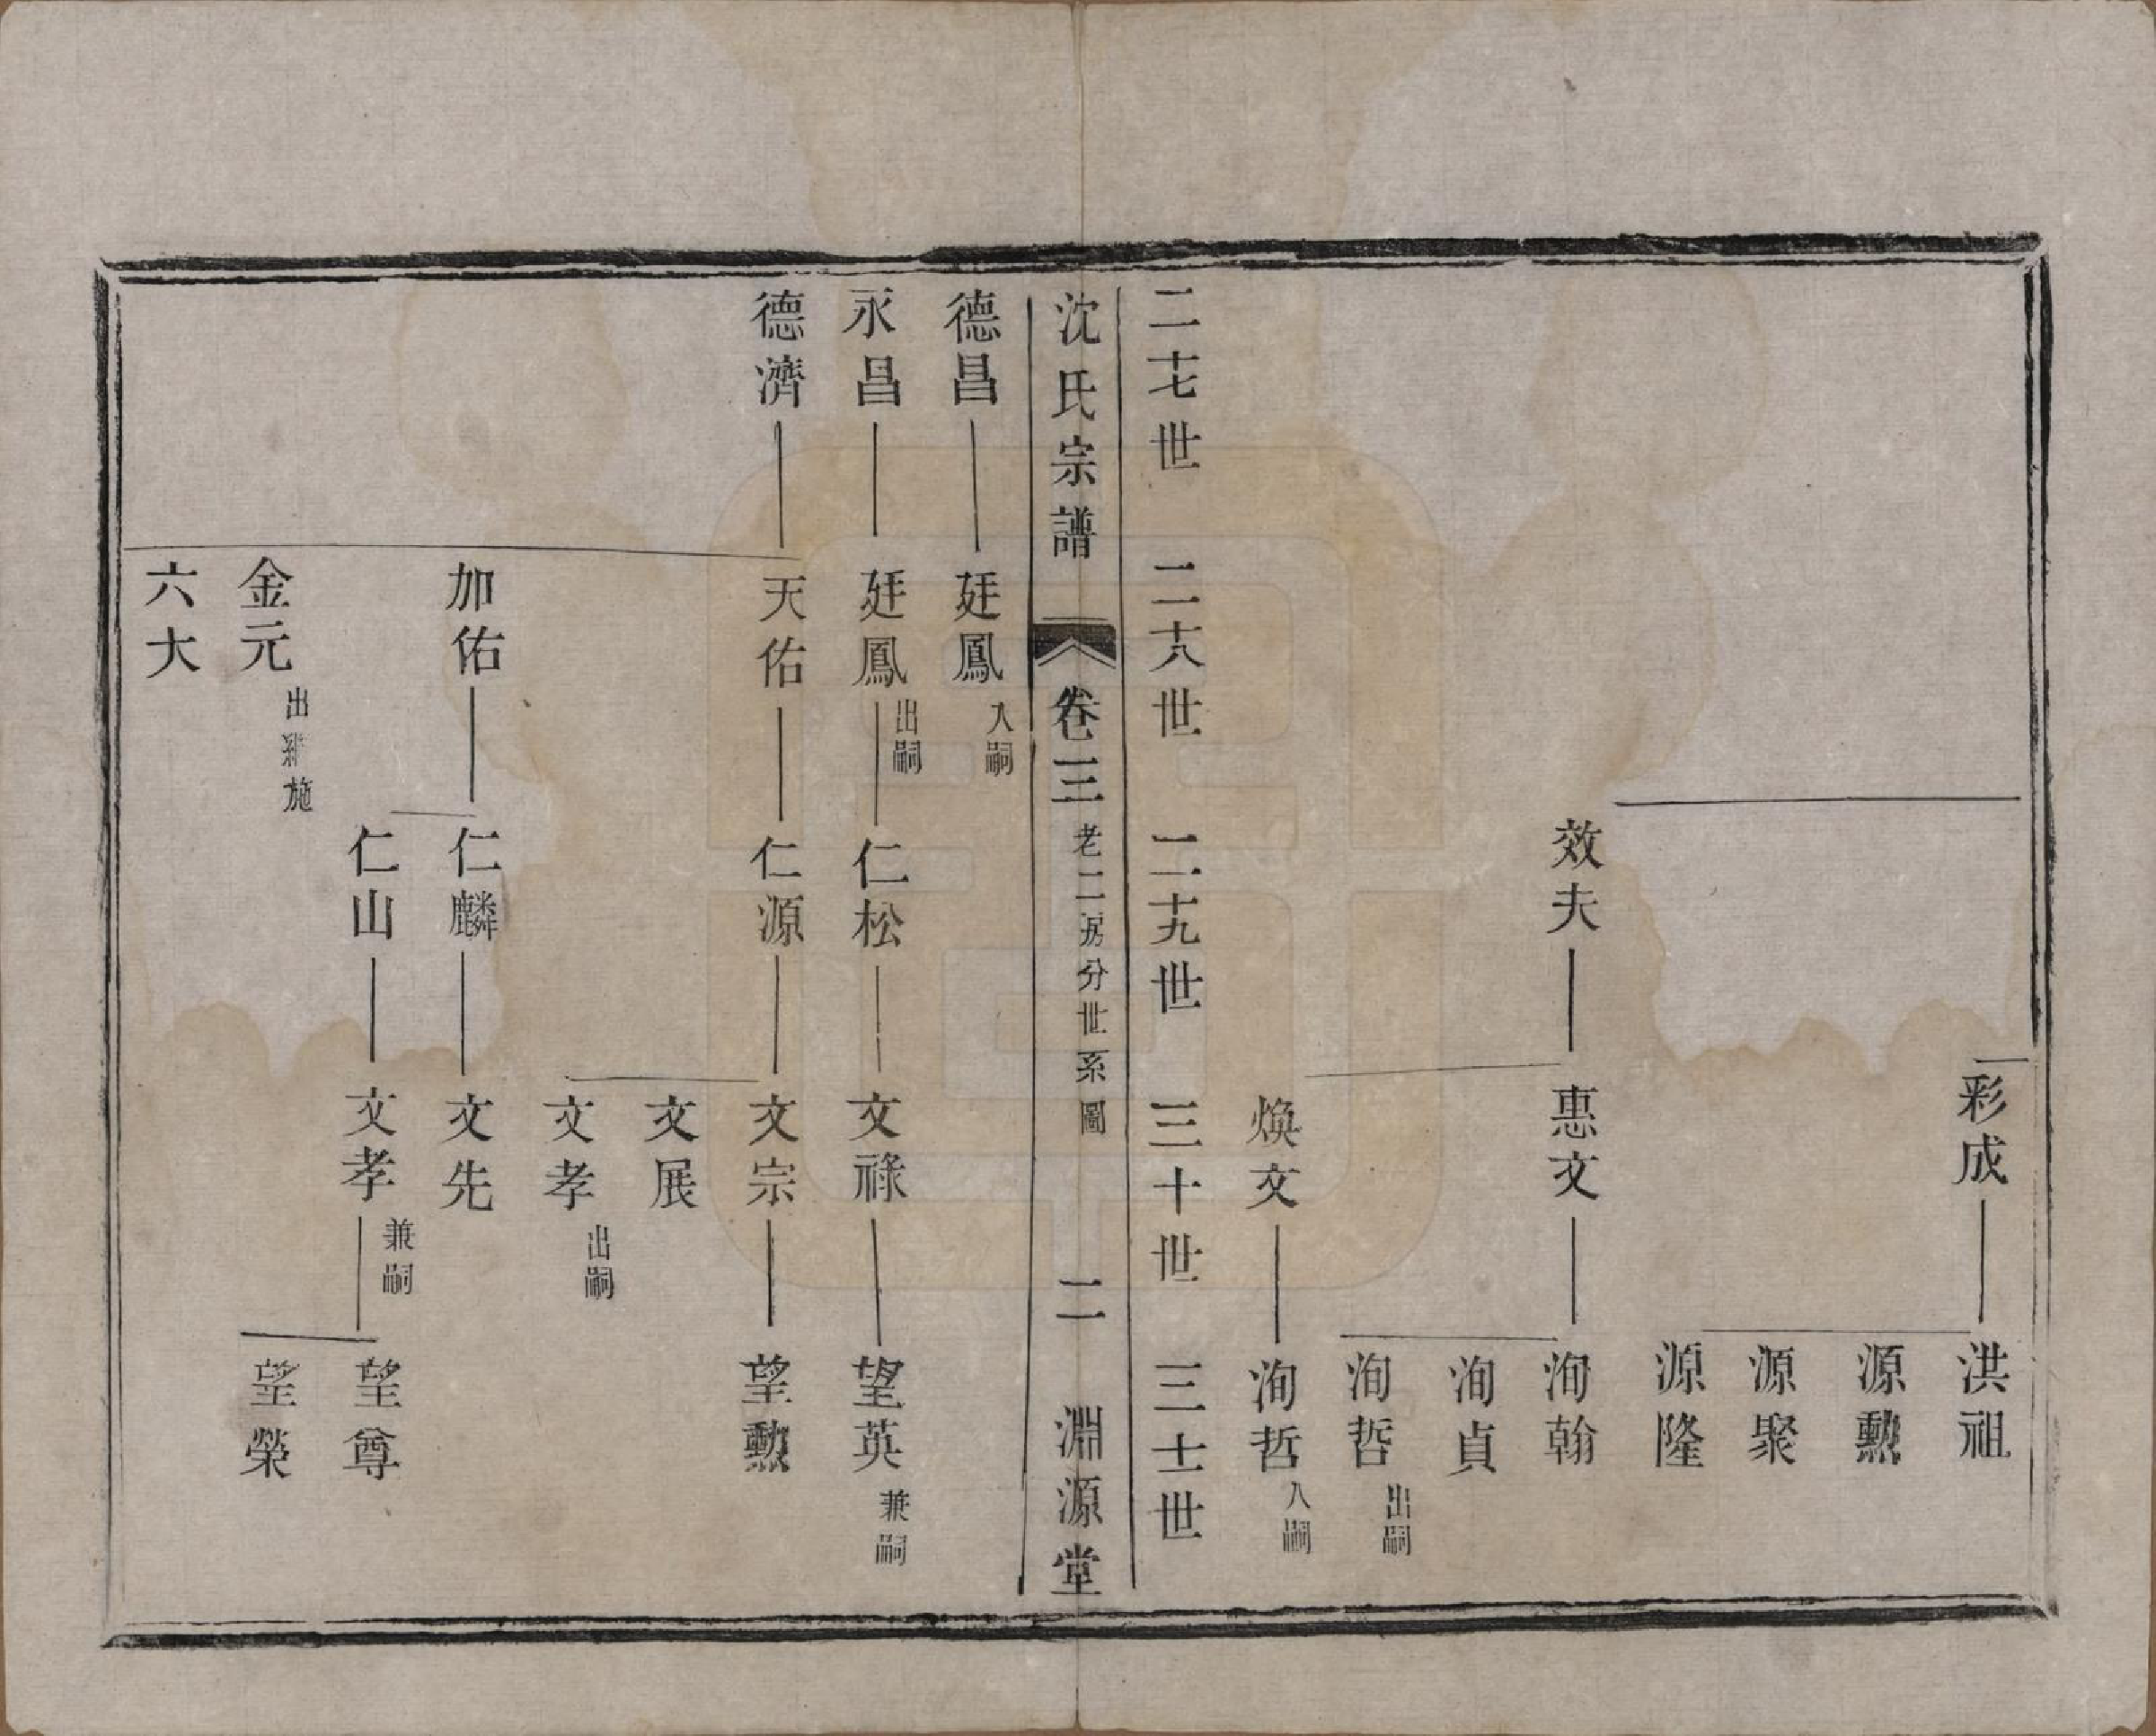 彩成
洪祖
源勲
源聚
源隆
效夫
惠文
洵翰
洵貞
洵哲 出嗣
煥文
洵哲 入嗣
二十七世 二十八世 二十九世 三十世 三十一世
沈氏宗譜 卷三 老二房分世系圖 二 淵源堂
德昌 廷鳳 入嗣
永昌 廷鳳 出嗣 仁松 文祿 望英 兼嗣
德濟 天佑 仁源 文宗 望勲
文展
文孝 出嗣
加佑 仁麟 文先
仁山 文孝 兼嗣 望尊
望榮
金元 出 施
六大